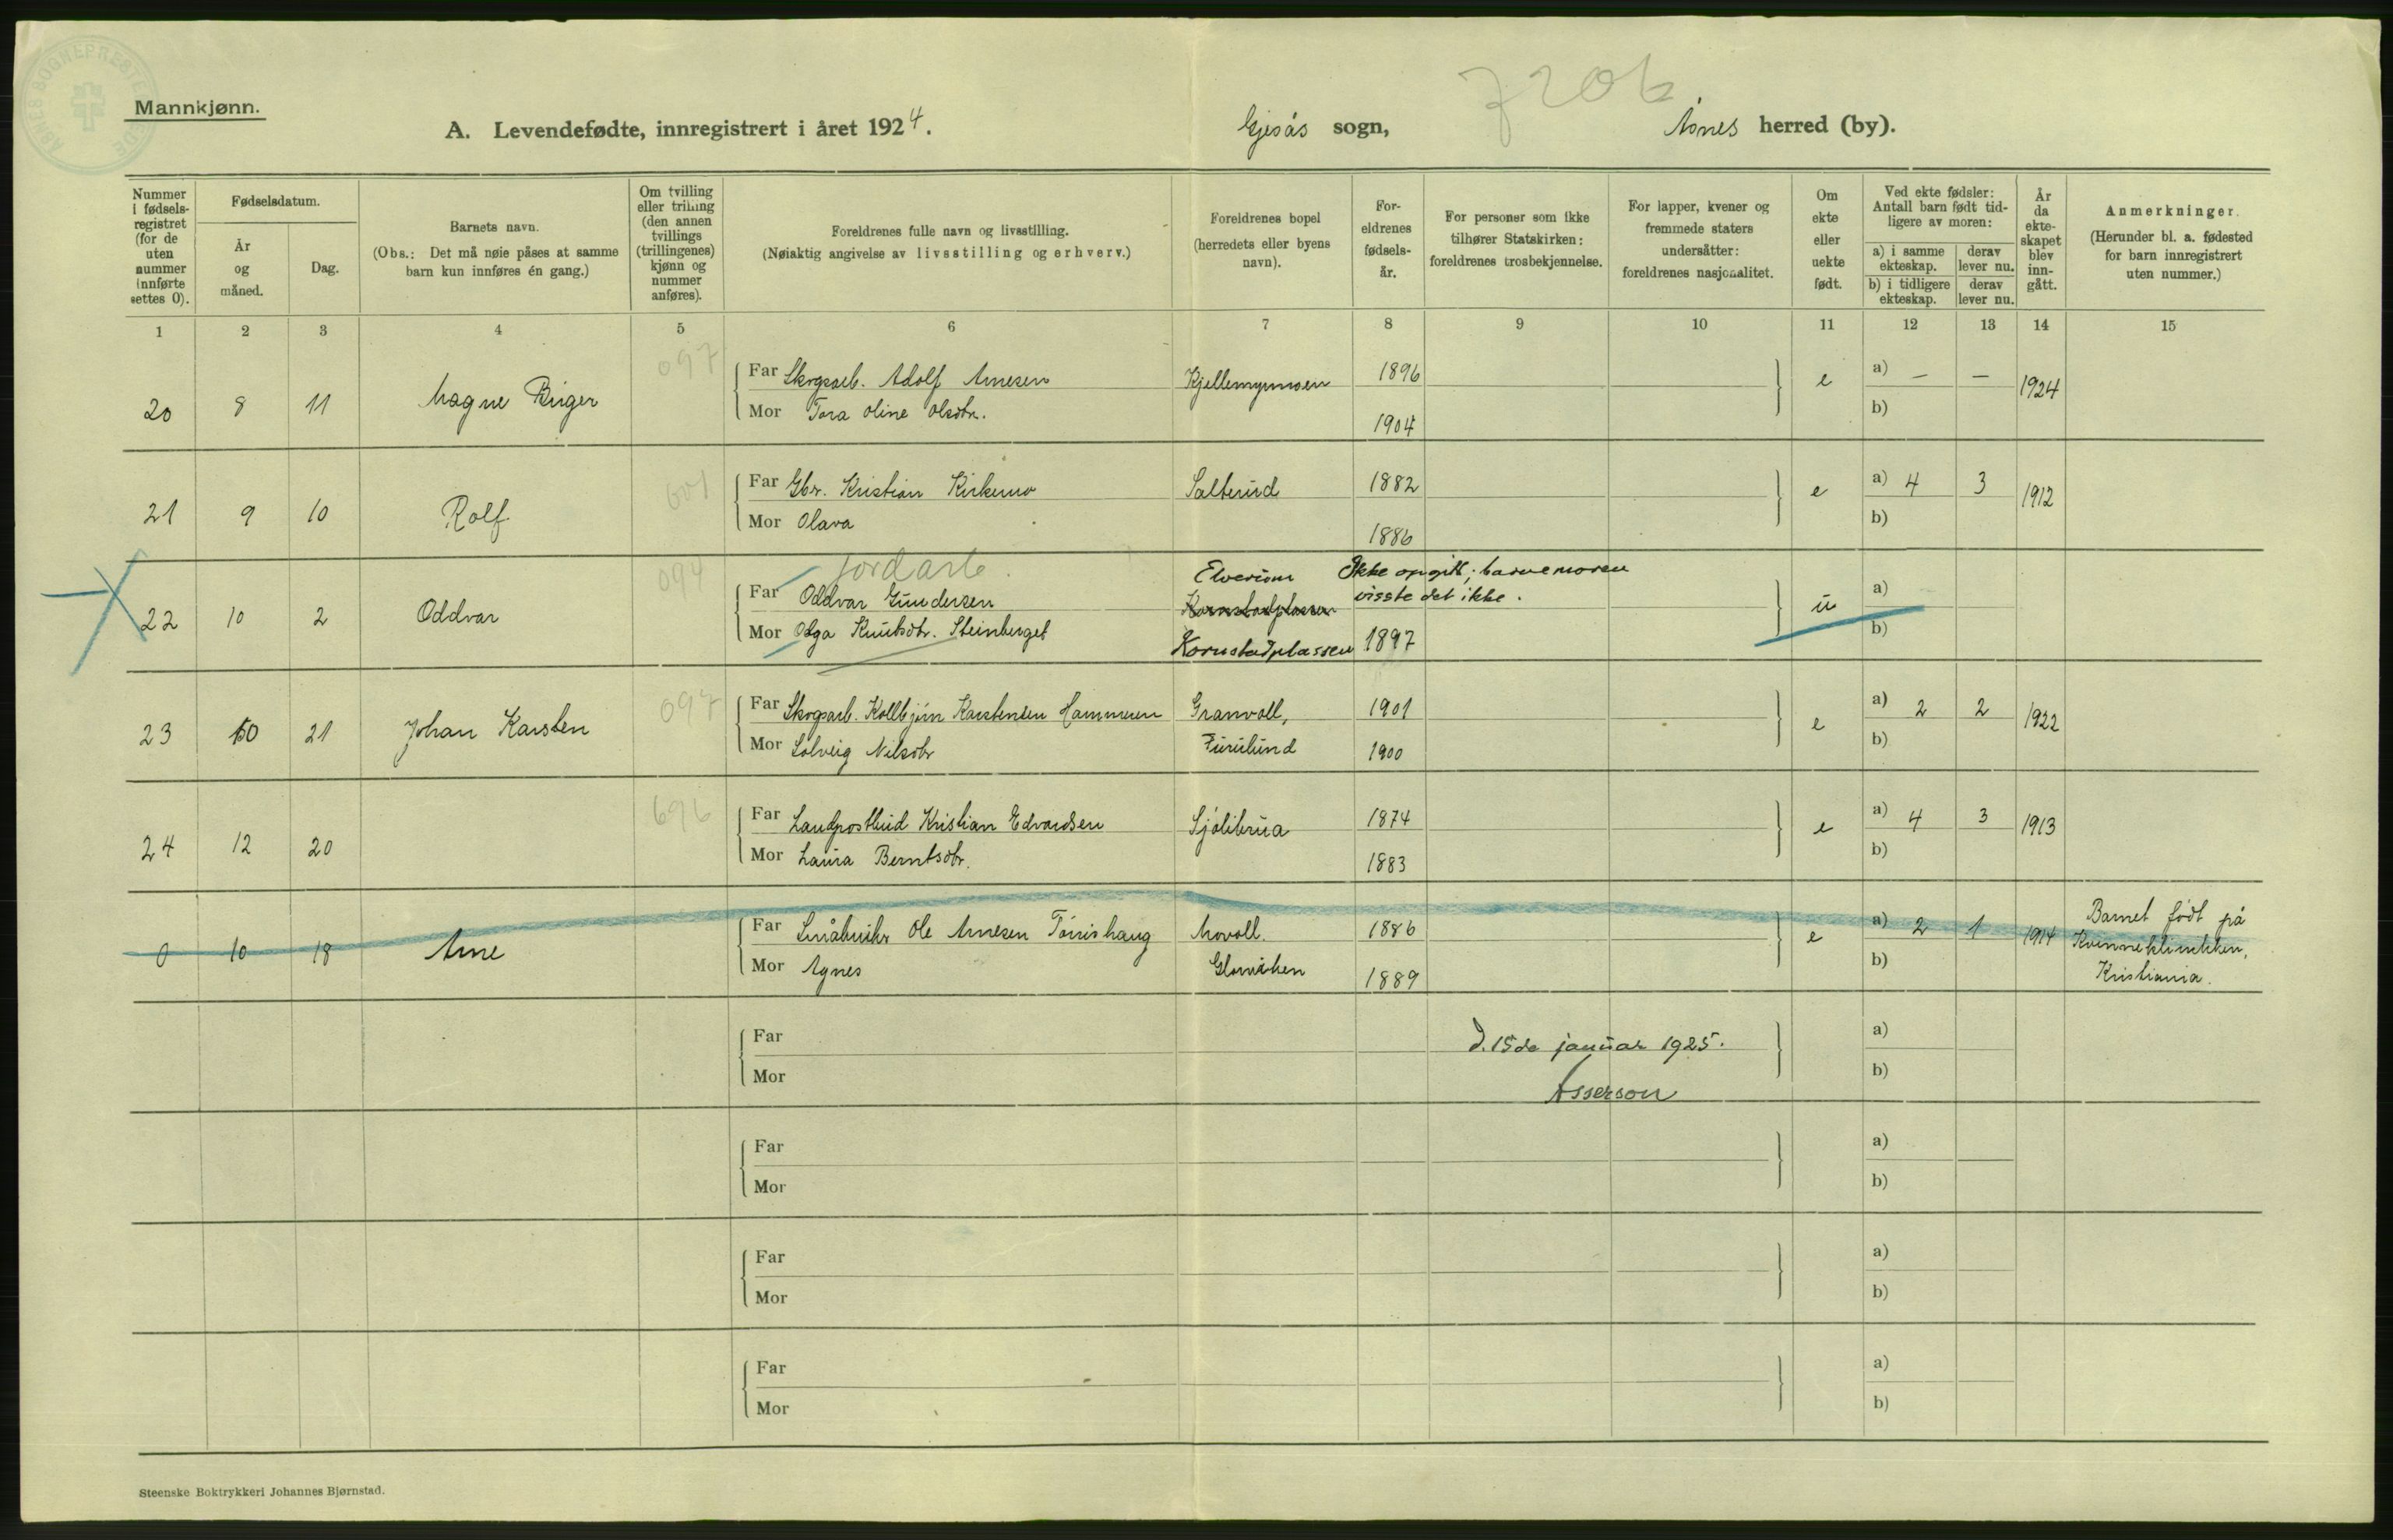 7206
Mannkjønn.
A. Levendefødte, innregistrert i året 1924.
Gjesås sogn,
Åsnes herred (by).
Nummer i fødselsregistret (for de uten nummer innførte settes 0).
Fødselsdatum.
År og måned.
Dag.
Barnets navn.
(Obs.: Det må nøie påses at samme barn kun innføres én gang.)
Om tvilling eller trilling (den annen tvillings (trillingenes) kjønn og nummer anføres).
Foreldrenes fulle navn og livsstilling.
(Nøiaktig angivelse av livsstilling og erhverv.)
Foreldrenes bopel (herredets eller byens navn).
Foreldrenes fødselsår.
For personer som ikke tilhører Statskirken: foreldrenes trosbekjennelse.
For lapper, kvener og fremmede staters undersåtter: foreldrenes nasjonalitet.
Om ekte eller uekte født.
Ved ekte fødsler: Antall barn født tidligere av moren:
a) i samme ekteskap.
derav lever nu.
b) i tidligere ekteskap.
derav lever nu.
År da ekteskapet blev inngått.
Anmerkninger.
(Herunder bl. a. fødested for barn innregistrert uten nummer.)
1 2 3 4 5 6 7 8 9 10 11 12 13 14 15
20 8 11 Magne Birger 097
Far Skogsarb. Adolf Arnesen Kjellemyrmoen 1896 e a) — — 1924
Mor Tora Oline Olsdtr. 1904 b)
21 9 10 Rolf 601
Far Gbr. Kristian Kirkemo Salterud 1882 e a) 4 3 1912
Mor Olava 1886 b)
22 10 2 Oddvar 094
jordarb.
Far Oddvar Gundersen Elverum Ikke opgitt; barnemoren visste det ikke. u a)
Kornstadplassen
Mor Olga Knutsdtr. Steinberget Kornstadplassen 1897 b)
23 10 21 Johan Karsten 097
Far Skogsarb. Kolbjørn Karstensen Hammeren Granvoll, 1901 e a) 2 2 1922
Mor Solveig Nilsdtr Furulund 1900 b)
24 12 20 696
Far Landpostbud Kristian Edvardsen Sjølibrua 1874 e a) 4 3 1913
Mor Laura Berntsdtr. 1883 b)
0 10 18 Arne
Far Småbruker Ole Arnesen Movoll. 1886 e a) 2 1 1914 Barnet født på Kvinneklinikken, Kristiania.
Mor Agnes 1889 b)
Far a)
Mor b)
d. 15de januar 1925.
Asserson
Far a)
Mor b)
Far a)
Mor b)
Far a)
Mor b)
Steenske Boktrykkeri Johannes Bjørnstad.